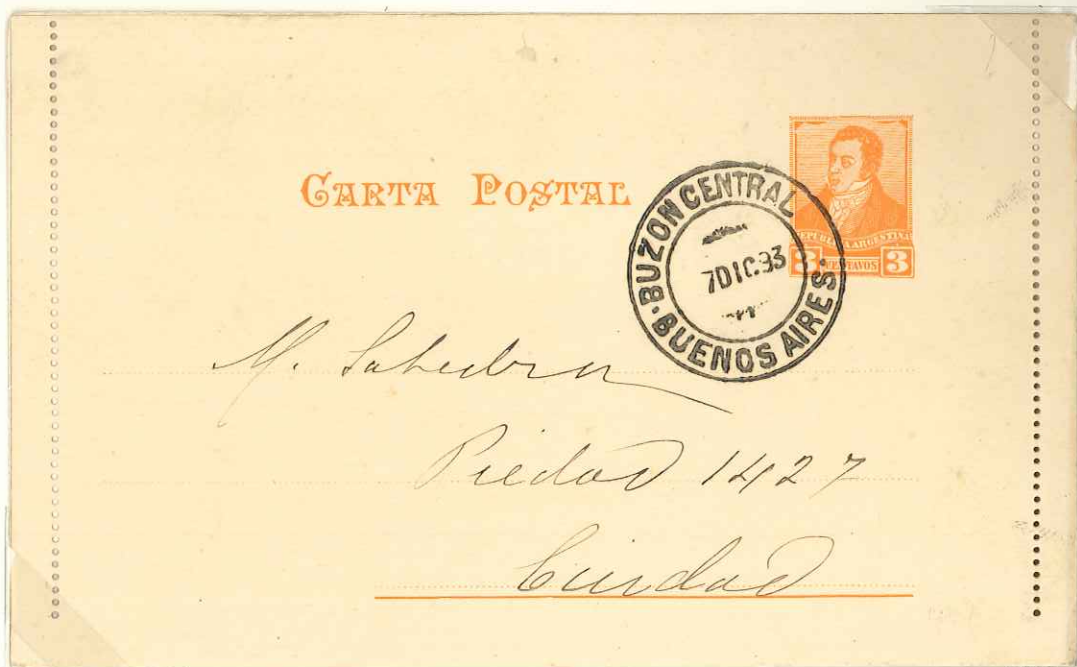 CARTA POSTAL
BUZON CENTRAL
7 DIC.93
BUENOS AIRES
REPUBLICA ARGENTINA
3 CENTAVOS 3
M. Sabedra
Piedad 1427
Ciudad